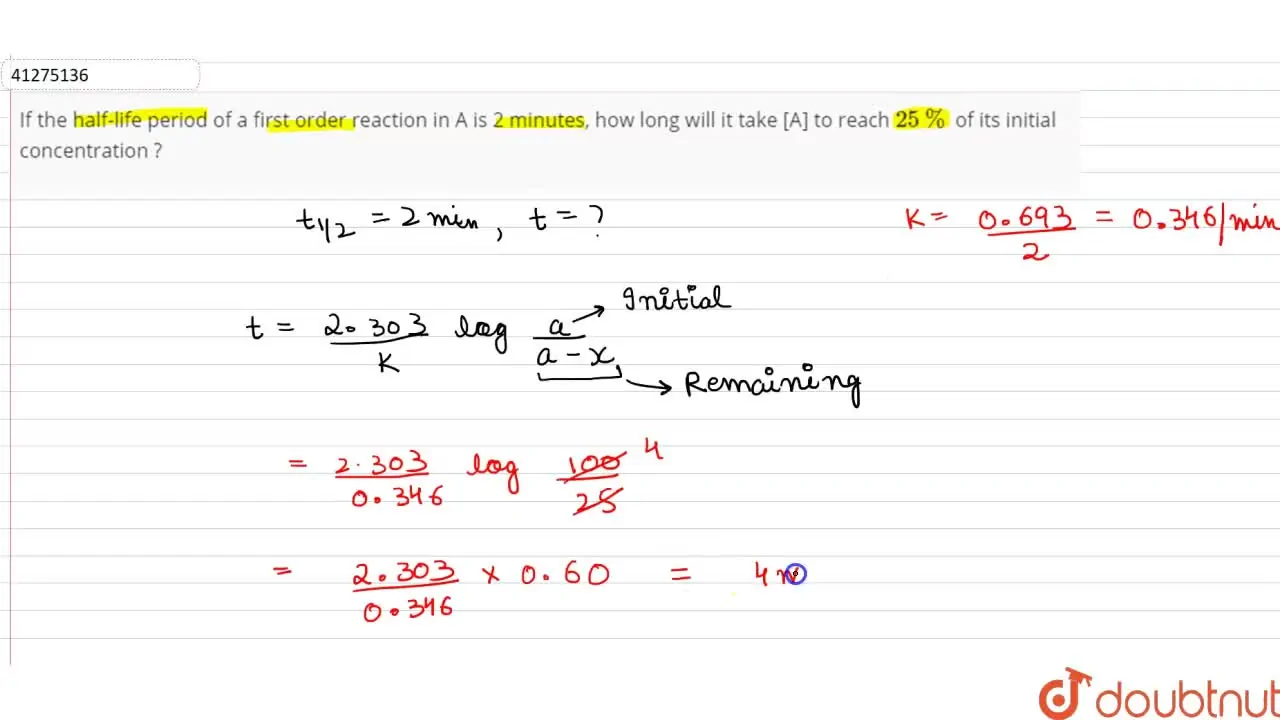 41275136
If the half-life period of a first order reaction in A is 2 minutes, how long will it take [A] to reach 25 % of its initial
concentration ?
t1/2 = 2 min, t = ?
K = 0.693/2 = 0.346/min
t = 2.303/K log a/a-x
Initial
Remaining
= 2.303/0.346 log 100/25 4
= 2.303/0.346 × 0.60 = 4 m
doubtnut